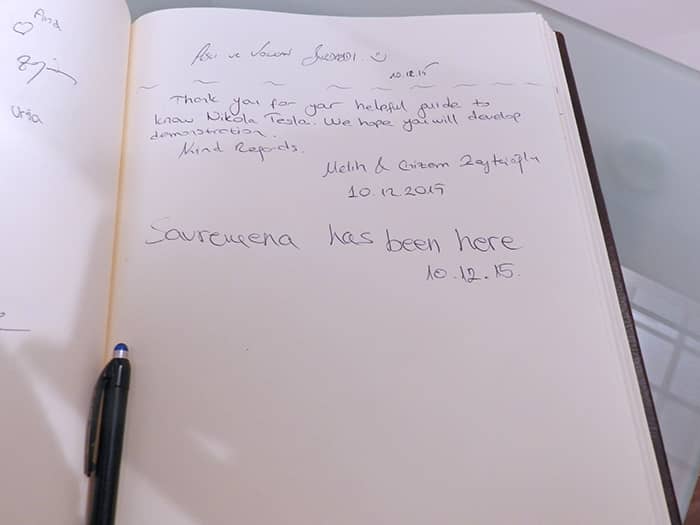 Ana
Urša
ve Volkan
10.12.15
Thank you for your helpful guide to
know Nikola Tesla. We hope you will develop
demonstration.
Kind Regards.
Melih & Gizem
10.12.2015
Savremena has been here
10.12.15.